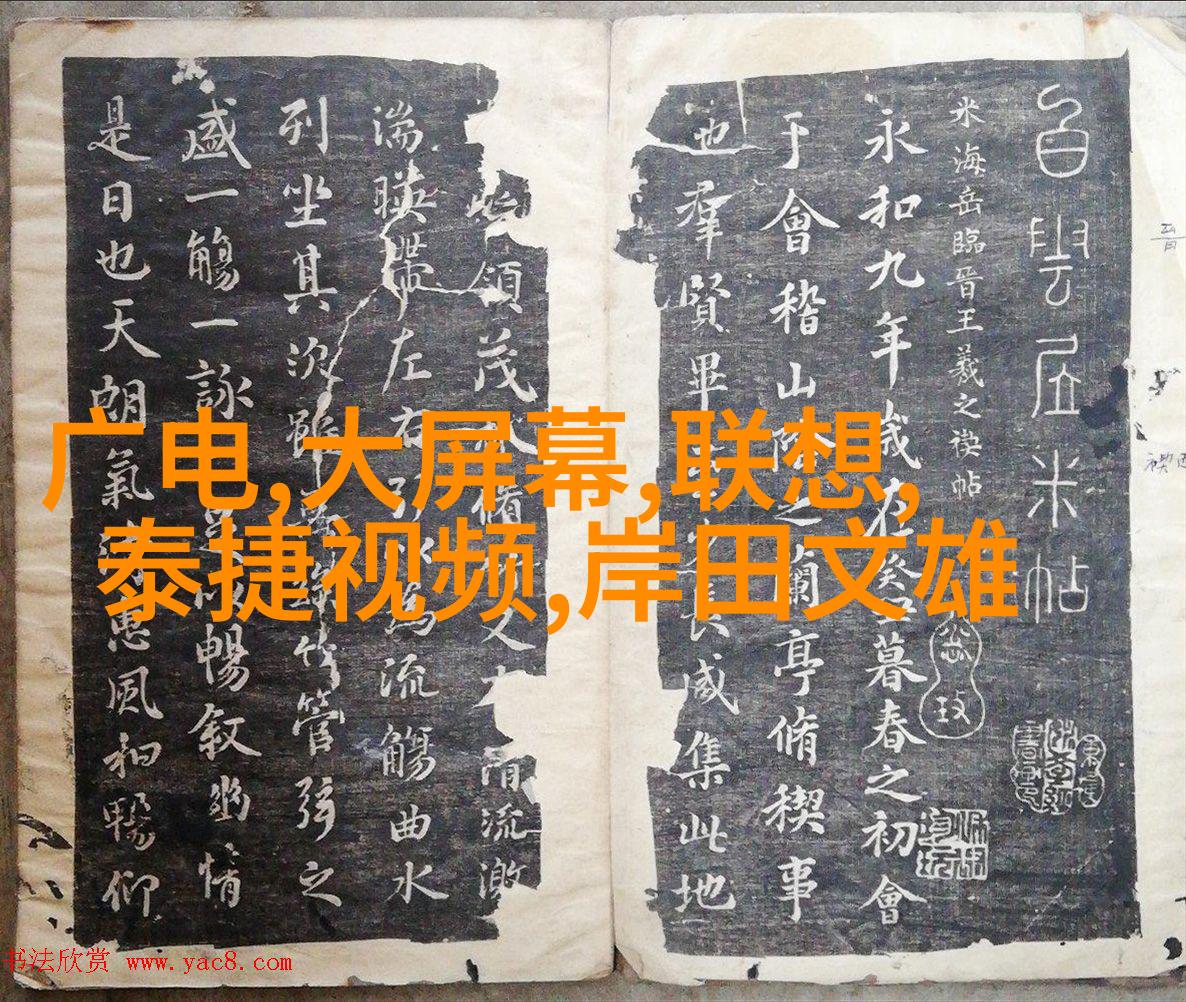 白雲居米帖
米海岳臨晉王羲之禊帖
永和九年歲在癸暮春之初會
于會稽山陰之蘭亭脩稧事
也羣賢畢長咸集此地
領茂脩又清流激
湍暎帶左右流觴曲水
列坐其次雖竹管弦之
盛一觴一詠暢敘幽情
是日也天朗氣惠風和暢仰
广电,大屏幕,联想,
泰捷视频,岸田文雄
书法欣赏 www.yac8.com